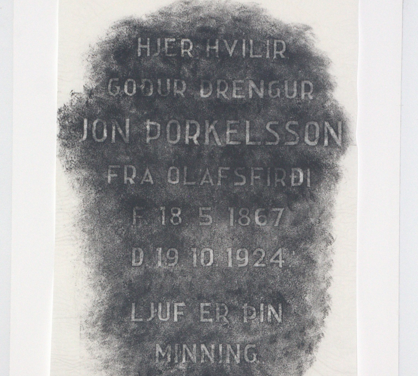 HJER HVILIR
GOÐUR DRENGUR
JON ÞORKELSSON
FRA OLAFSFIRÐI
F. 18 5 1867
D. 19 10 1924
LJUF ER ÞIN
MINNING